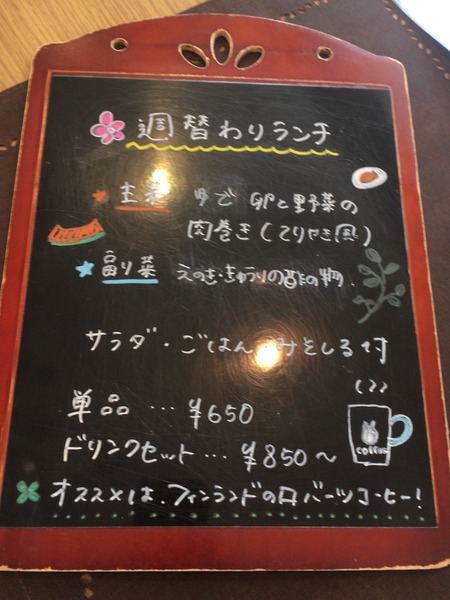 週替わりランチ
主菜 ゆで卵と野菜の
肉巻き(てりやき風)
副菜 えのき・きゅうりの酢の物.
サラダ・ごはん・みそしる付
単品 … ¥650
ドリンクセット … ¥850～
coffee
オススメは、フィンランドのロバーツコーヒー!